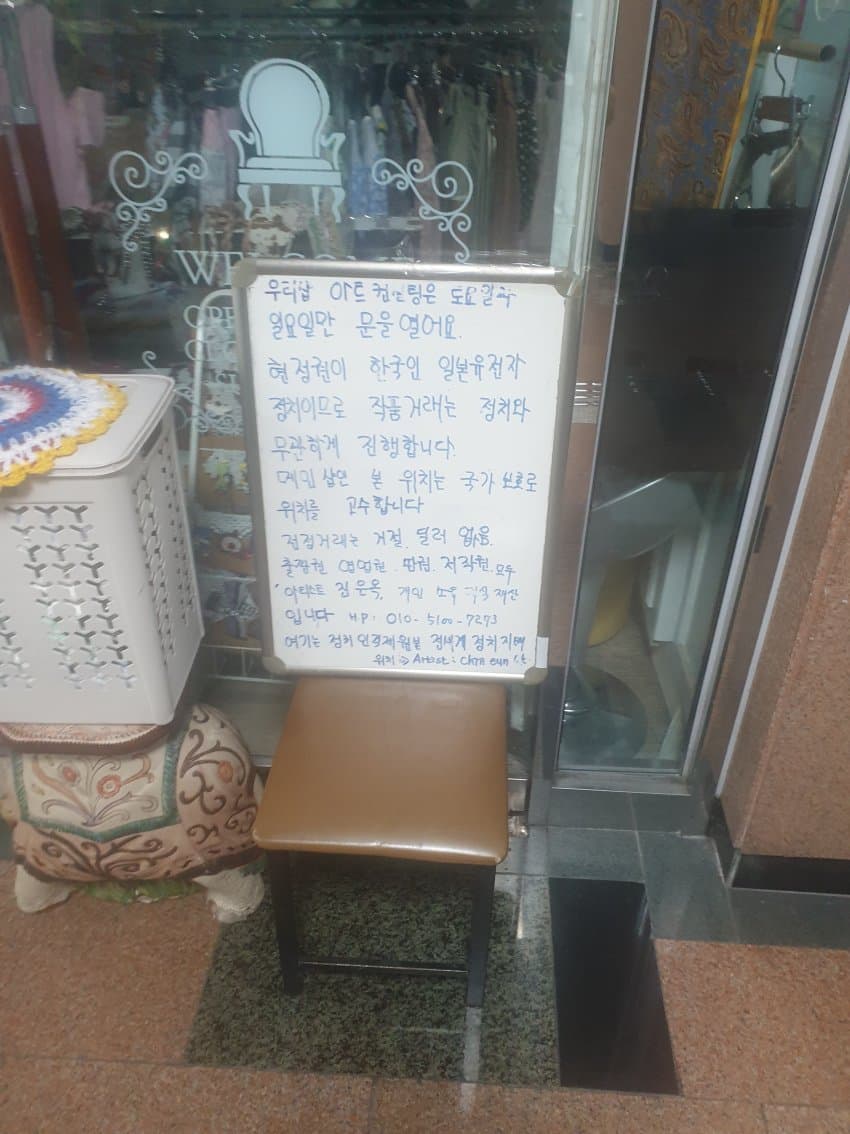 WE
우디샵 아트컨설팅은 토요일과
일요일만 문을열어요.
현정권이 한국인 일본유전자
정치이므로 작품거래는 정치와
무관하게 진행합니다.
본 위치는 국가 보호로
위치를 고수합니다
직접거래는 거절. 딜러 없음.
출판권 영업권. 판권. 저작권. 모두
아티스트 김은옥, 개인 소유 재산
입니다 HP: 010-5100-7273
여기는 정치 전세계 정치지역
위치 Artist: eun